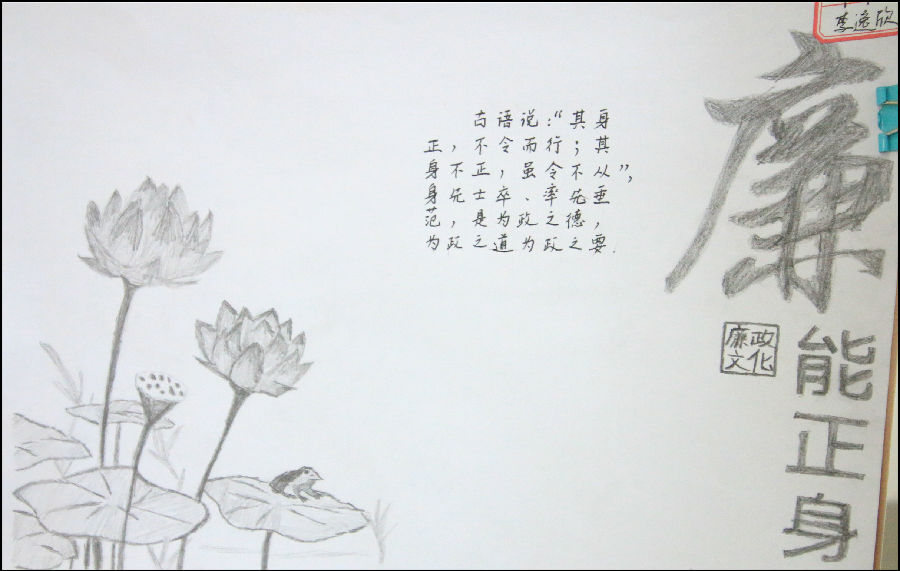 李逸欣
廉
能
正
身
廉政
文化
古语说:“其身
正,不令而行;其
身不正,虽令不从”,
身先士卒、率先垂
范,是为政之德,
为政之道为政之要.